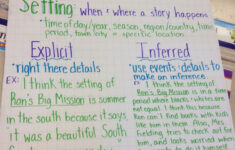 Setting when & where a story happens
• time of day/year, season, region/country, time
period, town/city → specific location
Explicit
• right there details
EX: I think the setting of
Ron's Big Mission is summer
in the south because it says
it was a beautiful South
Inferred
• use events & details to
make an inference.
EX: I think the setting of
Ron's Big Mission is in a time
period where blacks & whites are
not equal. I think this because
Ron can't find books with kids
like him on them. Also, Mrs.
Fielding tries to check out for
him, and looks worried when